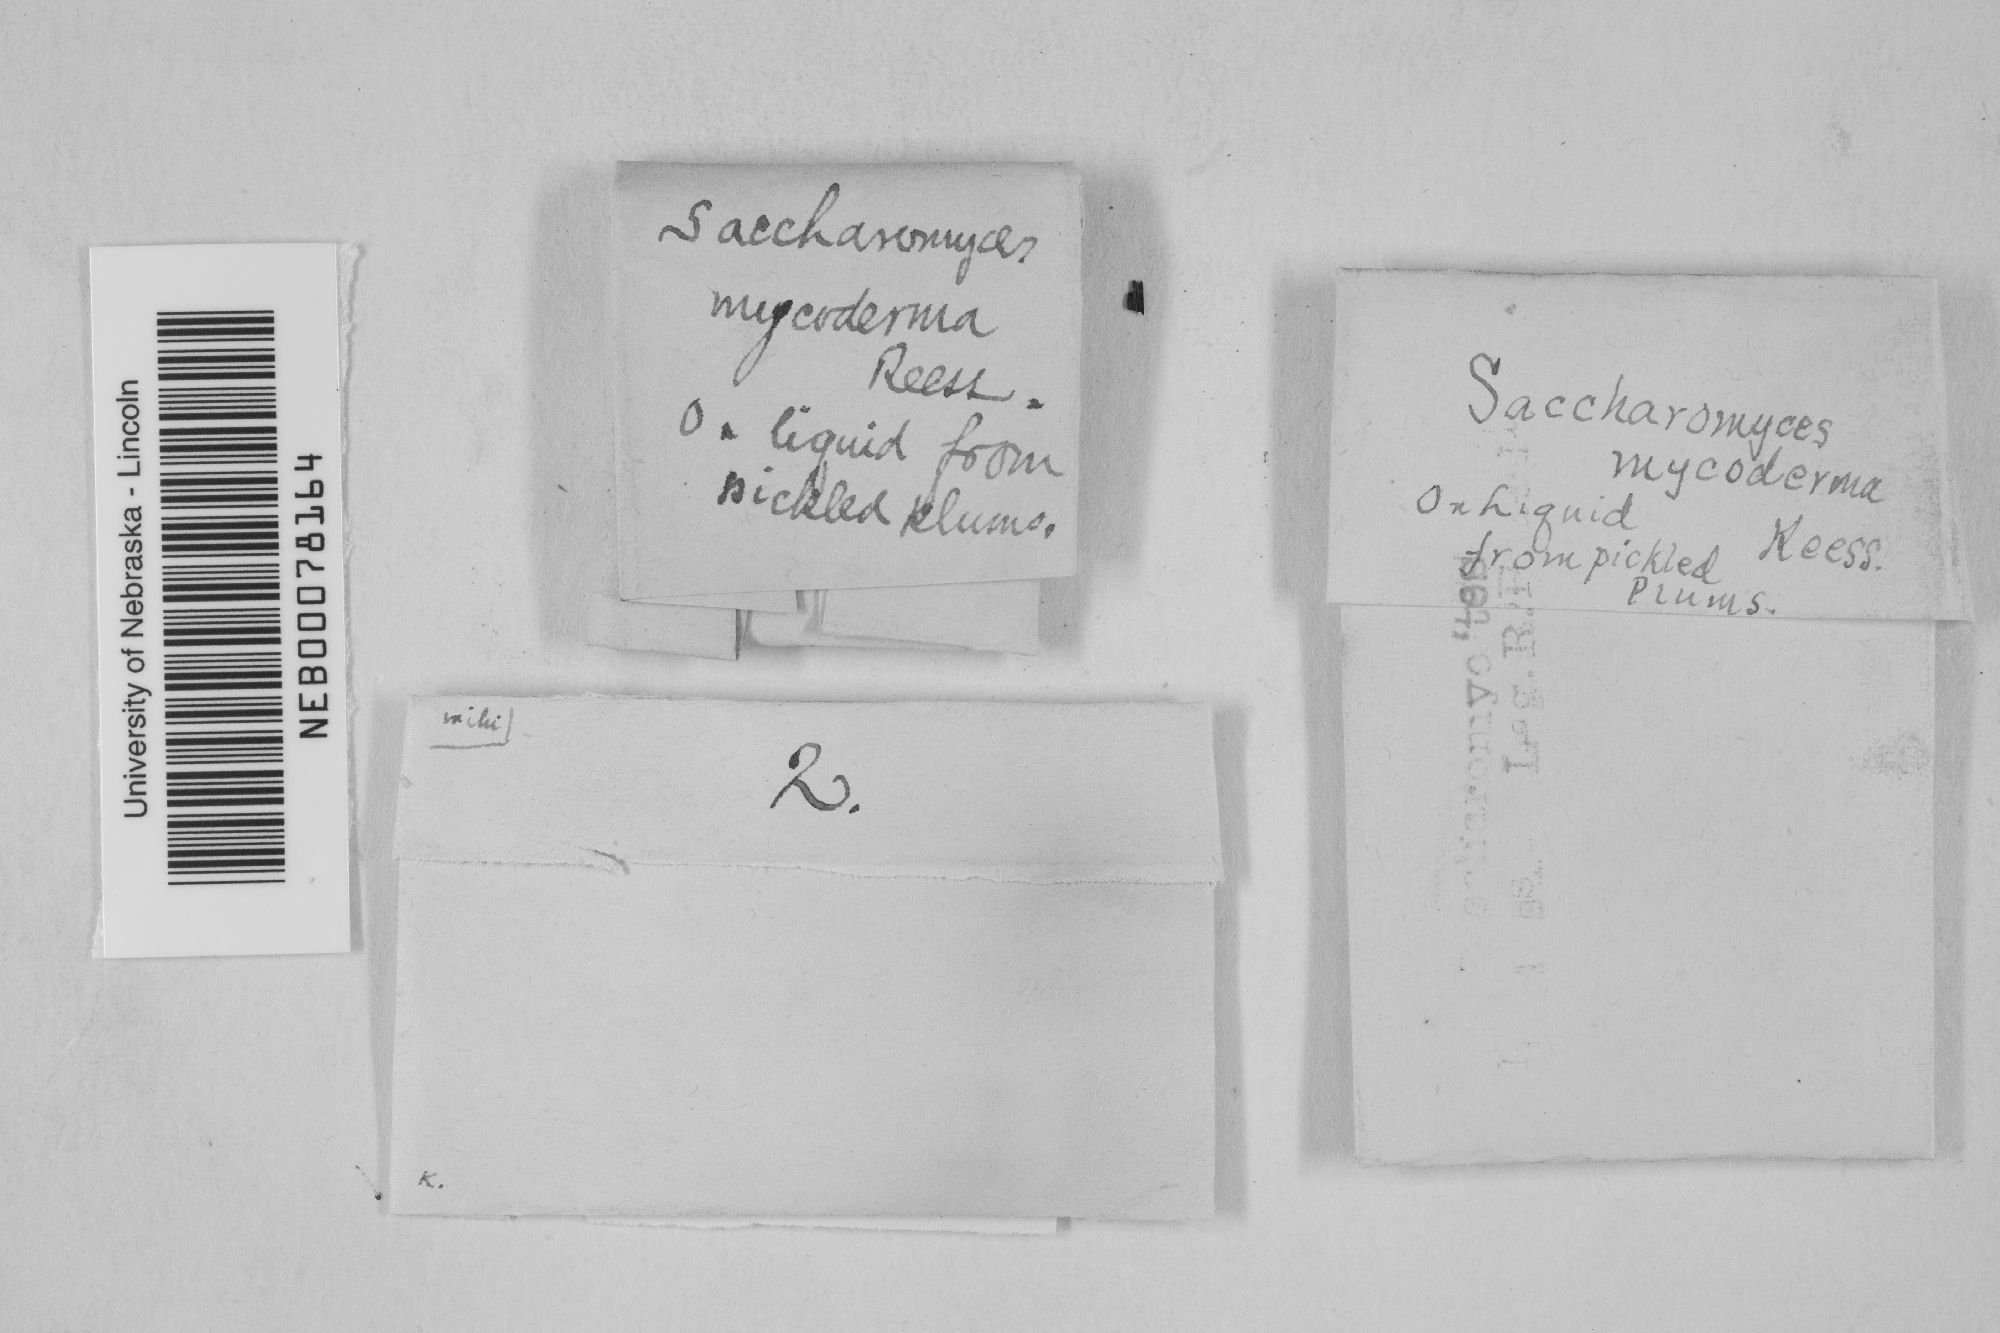 University of Nebraska - Lincoln
NEB00078164
Saccharomyces
mycoderma
Reess.
On liquid from
pickled plums.
mihi
2.
K.
Saccharomyces
mycoderma
On Liquid
Reess.
from pickled
Plums.